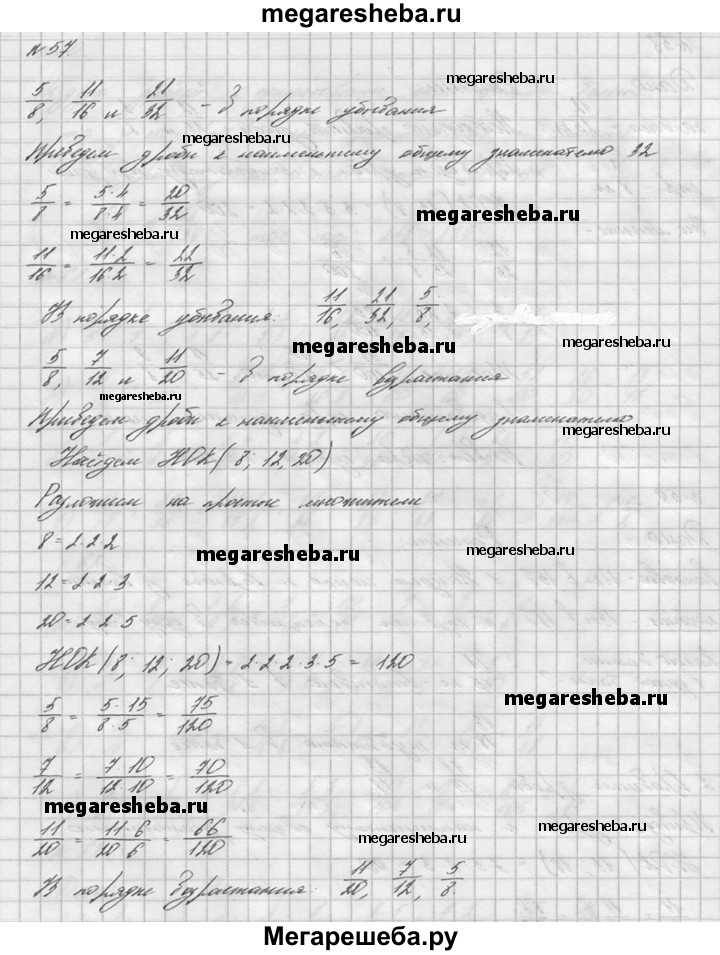 megaresheba.ru
№ 57.
megaresheba.ru
5/8, 11/16 и 21/32 - в порядке убывания
megaresheba.ru
Приведем дроби к наименьшему общему знаменателю 32
5/8 = 5·4/8·4 = 20/32
megaresheba.ru
megaresheba.ru
11/16 = 11·2/16·2 = 22/32
В порядке убывания: 11/16, 21/32, 5/8,
megaresheba.ru
megaresheba.ru
5/8, 7/12 и 11/20 - в порядке возрастания
megaresheba.ru
Приведем дроби к наименьшему общему знаменателю
megaresheba.ru
Найдем НОК(8; 12, 20)
Разложим на простые множители
8 = 2·2·2
megaresheba.ru
megaresheba.ru
12 = 2·2·3
20 = 2·2·5
НОК(8; 12; 20) = 2·2·2·3·5 = 120
megaresheba.ru
5/8 = 5·15/8·5 = 75/120
7/12 = 7·10/12·10 = 70/120
megaresheba.ru
11/20 = 11·6/20·6 = 66/120
megaresheba.ru
megaresheba.ru
В порядке возрастания: 11/20, 7/12, 5/8.
Мегарешеба.ру